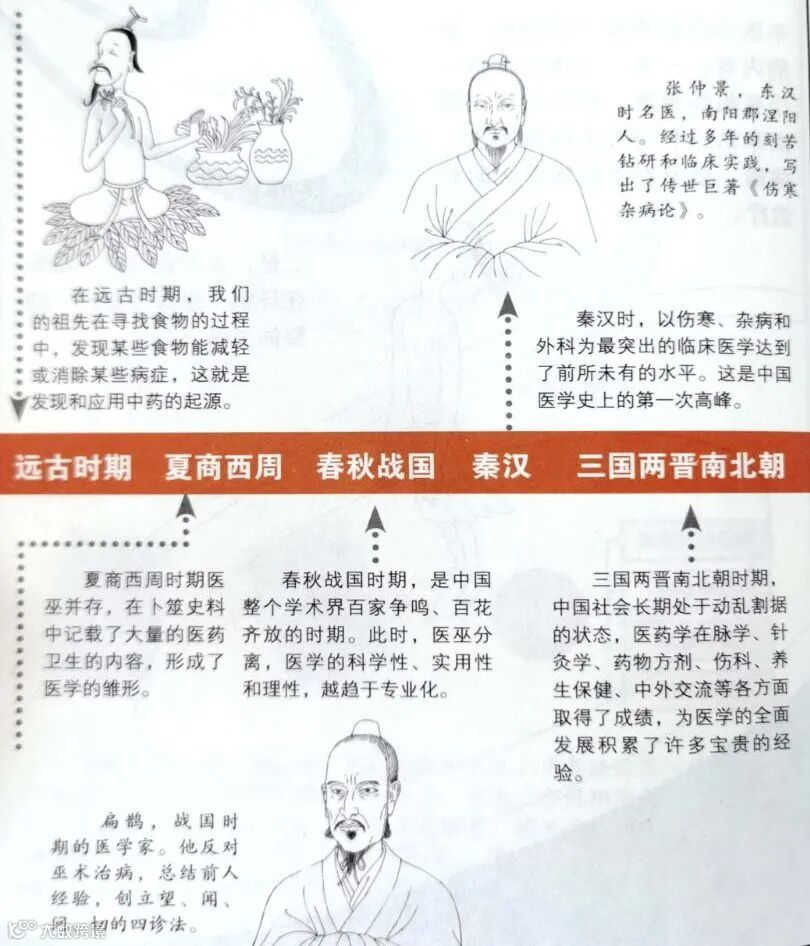 张仲景，东汉
时名医，南阳郡涅阳
人。经过多年的刻苦
钻研和临床实践，写
出了传世巨著《伤寒
杂病论》。
在远古时期，我们
的祖先在寻找食物的过程
中，发现某些食物能减轻
或消除某些病症，这就是
发现和应用中药的起源。
秦汉时，以伤寒、杂病和
外科为最突出的临床医学达到
了前所未有的水平。这是中国
医学史上的第一次高峰。
远古时期 夏商西周 春秋战国 秦汉 三国两晋南北朝
夏商西周时期医
巫并存，在卜筮史料
中记载了大量的医药
卫生的内容，形成了
医学的雏形。
春秋战国时期，是中国
整个学术界百家争鸣、百花
齐放的时期。此时，医巫分
离，医学的科学性、实用性
和理性，越趋于专业化。
三国两晋南北朝时期，
中国社会长期处于动乱割据
的状态，医药学在脉学、针
灸学、药物方剂、伤科、养
生保健、中外交流等各方面
取得了成绩，为医学的全面
发展积累了许多宝贵的经
验。
扁鹊，战国时
期的医学家。他反对
巫术治病，总结前人
经验，创立望、闻、
问、切的四诊法。
大数跨境